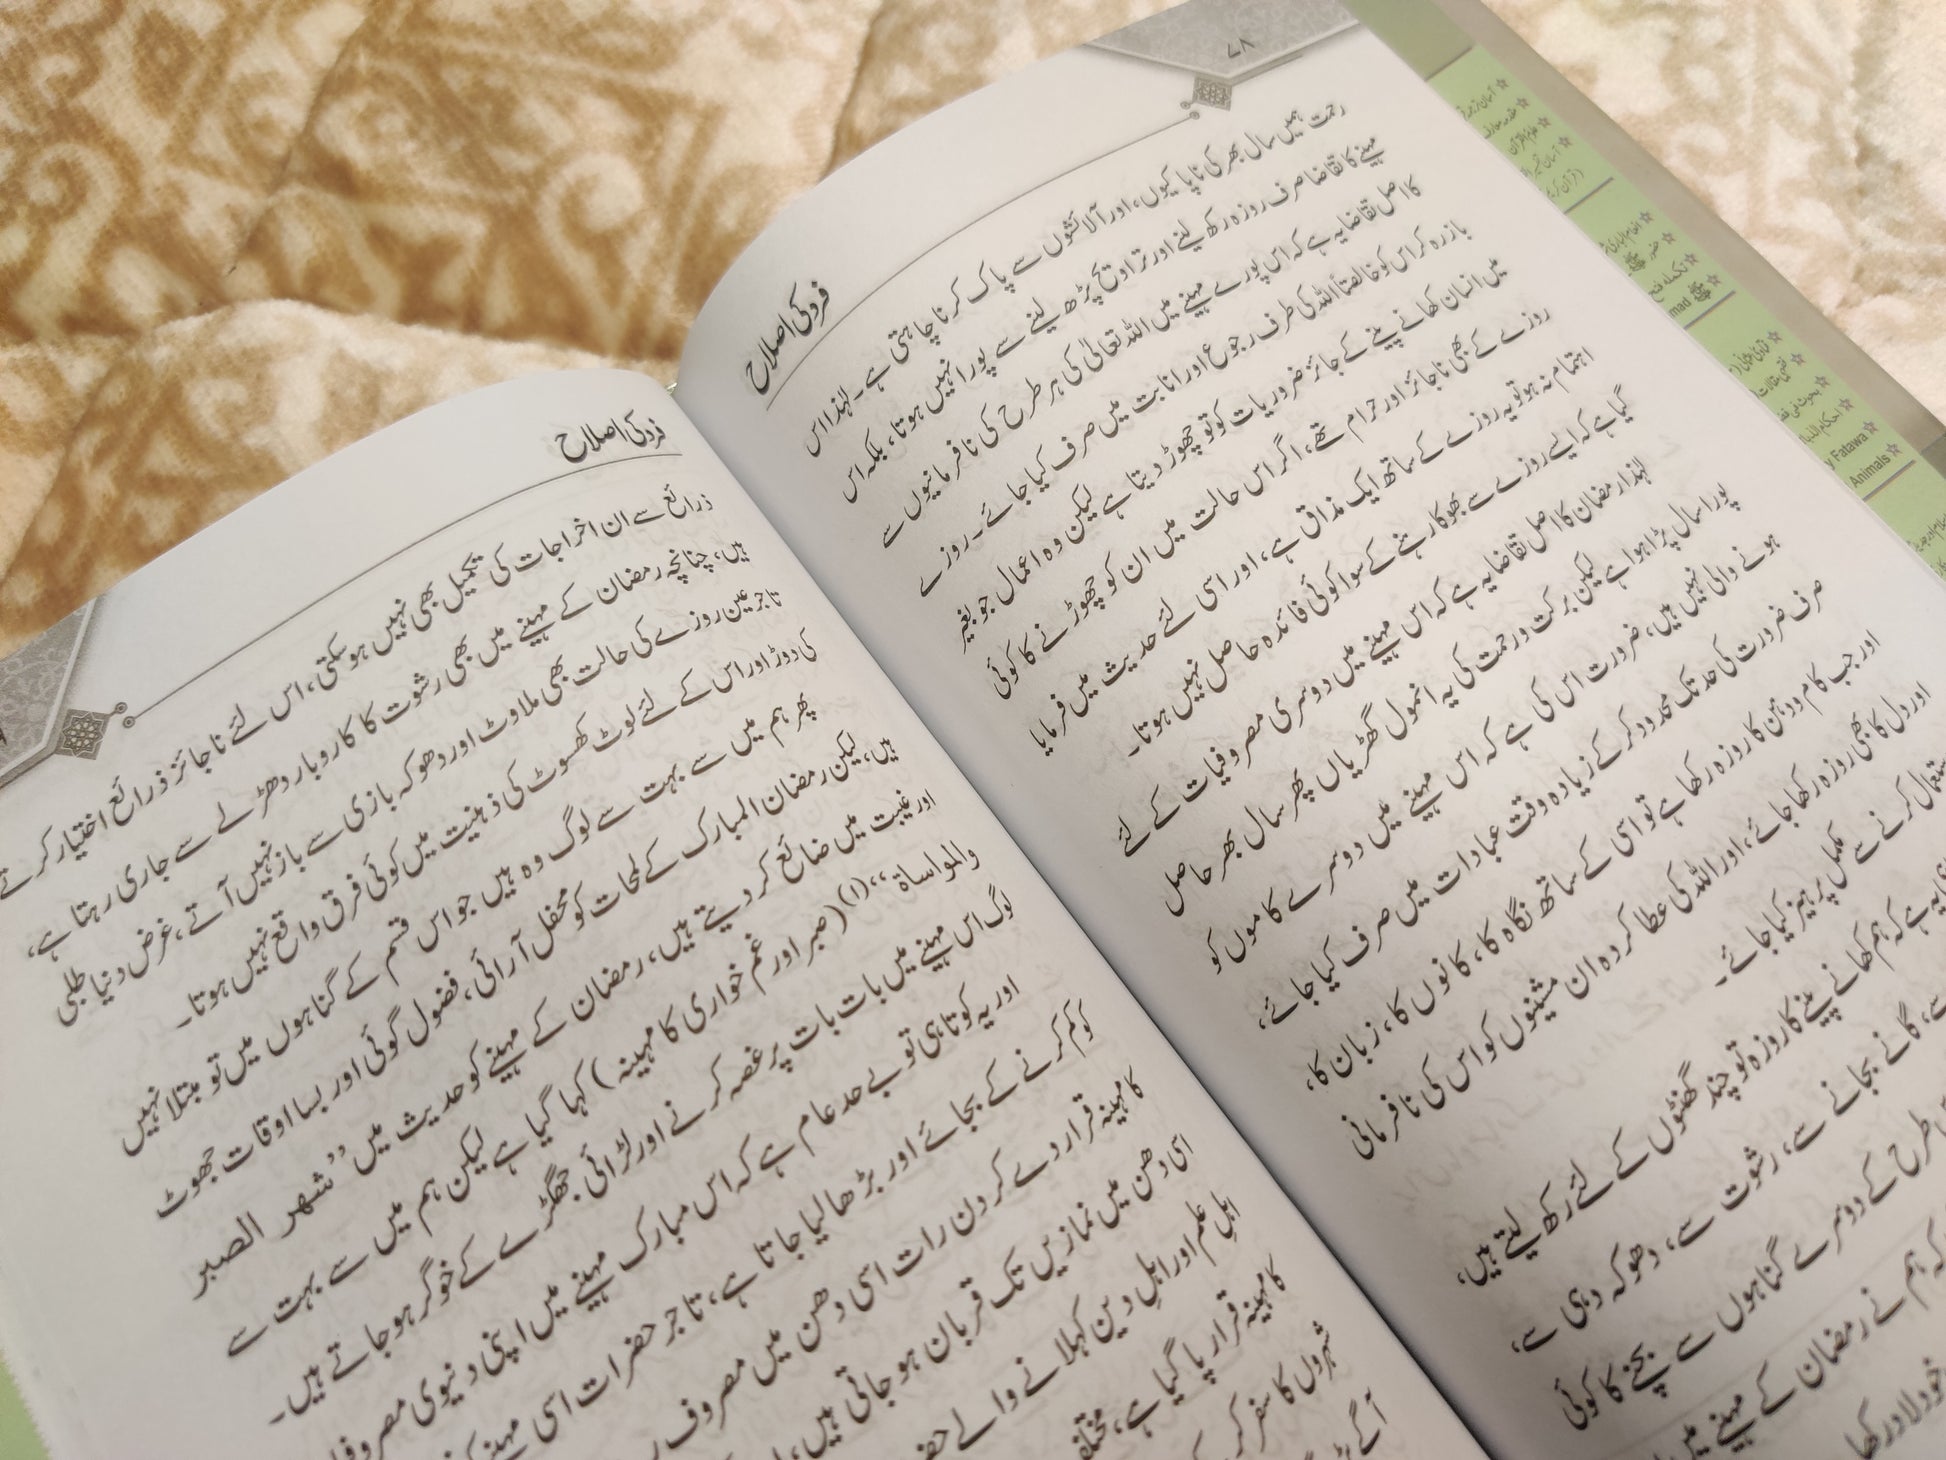 ۷۸
فرد کی اصلاح
رحمت ہمیں سال بھر کی ناپاکیوں، اور آلائشوں سے پاک کرنا چاہتی ہے۔ لہٰذا اس
مہینے کا تقاضا صرف روزہ رکھ لینے اور تراویح پڑھ لینے سے پورا نہیں ہوتا، بلکہ اس
کا اصل تقاضا یہ ہے کہ اس پورے مہینے میں اللہ تعالیٰ کی ہر طرح کی نافرمانیوں سے
باز رہ کر اس کو خالصتاً اللہ کی طرف رجوع اور انابت میں صرف کیا جائے۔ روزے
میں انسان کھانے پینے کے جائز ضروریات کو تو چھوڑ دیتا ہے لیکن وہ اعمال جو بغیر
روزے کے بھی ناجائز اور حرام تھے، اگر اس حالت میں ان کو چھوڑنے کا کوئی
اہتمام نہ ہو تو یہ روزے کے ساتھ ایک مذاق ہے، اور اسی لئے حدیث میں فرمایا
گیا ہے کہ ایسے روزے سے بھوکا رہنے کے سوا کوئی فائدہ حاصل نہیں ہوتا۔
لہٰذا رمضان کا اصل تقاضا یہ ہے کہ اس مہینے میں دوسری مصروفیات کے لئے
پورا سال پڑا ہوا ہے لیکن برکت ورحمت کی یہ انمول گھڑیاں پھر سال بھر حاصل
ہونے والی نہیں ہیں، ضرورت اس کی ہے کہ اس مہینے میں دوسرے کاموں کو
صرف ضرورت کی حد تک محدود کر کے زیادہ وقت عبادات میں صرف کیا جائے،
اور جب کام و دہن کا روزہ رکھا ہے تو اسی کے ساتھ نگاہ کا، کانوں کا، زبان کا،
اور دل کا بھی روزہ رکھا جائے، اور اللہ کی عطا کردہ ان مشینوں کو اس کی نافرمانی
استعمال کرنے سے مکمل پرہیز کیا جائے۔
یہ ہے کہ ہم کھانے پینے کا روزہ تو چند گھنٹوں کے لئے رکھ لیتے ہیں،
سے، گانے بجانے سے، رشوت سے، دھوکہ دہی سے،
طرح کے دوسرے گناہوں سے بچنے کا کوئی
کہ ہم نے رمضان کے مہینے میں
خود لا در رکھا
فرد کی اصلاح
ذرائع سے ان اخراجات کی تکمیل بھی نہیں ہو سکتی، اس لئے ناجائز ذرائع اختیار کرتے
ہیں، چنانچہ رمضان کے مہینے میں بھی رشوت کا کاروبار دھڑلے سے جاری رہتا ہے،
تاجر عین روزے کی حالت بھی ملاوٹ اور دھوکہ بازی سے باز نہیں آتے، غرض دنیا طلبی
کی دوڑ اور اس کے لئے لوٹ کھسوٹ کی ذہنیت میں کوئی فرق واقع نہیں ہوتا۔
پھر ہم میں سے بہت سے لوگ وہ ہیں جو اس قسم کے گناہوں میں تو مبتلا نہیں
ہیں، لیکن رمضان المبارک کے لمحات کو محفل آرائی، فضول گوئی اور بسا اوقات جھوٹ
اور غیبت میں ضائع کر دیتے ہیں، رمضان کے مہینے کو حدیث میں ”شهر الصبر
والمواساة“ (۱) (صبر اور غم خواری کا مہینہ) کہا گیا ہے لیکن ہم میں سے بہت سے
لوگ اس مہینے میں بات بات پر غصہ کرنے اور لڑائی جھگڑے کے خوگر ہو جاتے ہیں۔
اور یہ کوتاہی تو بے حد عام ہے کہ اس مبارک مہینے میں اپنی دنیوی
کو کم کرنے کے بجائے اور بڑھا لیا جاتا ہے، تاجر حضرات اسی مہینے
کا مہینہ قرار دے کر دن رات اسی دھن میں مصروف
اسی دھن میں نمازیں تک قربان ہو جاتی ہیں،
اہل علم اور اہل دین کہلانے والے
کا مہینہ قرار پا گیا ہے، مختلف
شہروں کا سفر کر
آگے
Fatawa
Animals